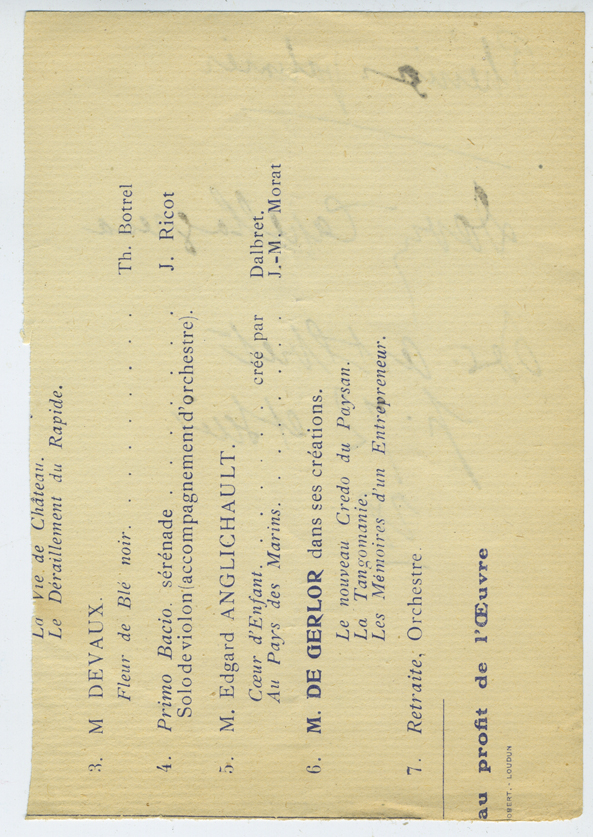 La Vie de Château.
Le Déraillement du Rapide.
3. M DEVAUX.
Fleur de Blé noir. . . . . . . . . . . Th. Botrel
4. Primo Bacio. sérénade . . . . . . . J. Ricot
Solo de violon (accompagnement d'orchestre).
5. M. Edgard ANGLICHAULT.
Cœur d'Enfant. . . . . . . créé par Dalbret.
Au Pays des Marins. . . . . . . . J.-M. Morat
6. M. DE GERLOR dans ses créations.
Le nouveau Credo du Paysan.
La Tangomanie.
Les Mémoires d'un Entrepreneur.
7. Retraite, Orchestre.
au profit de l'Œuvre
OBERT. - LOUDUN